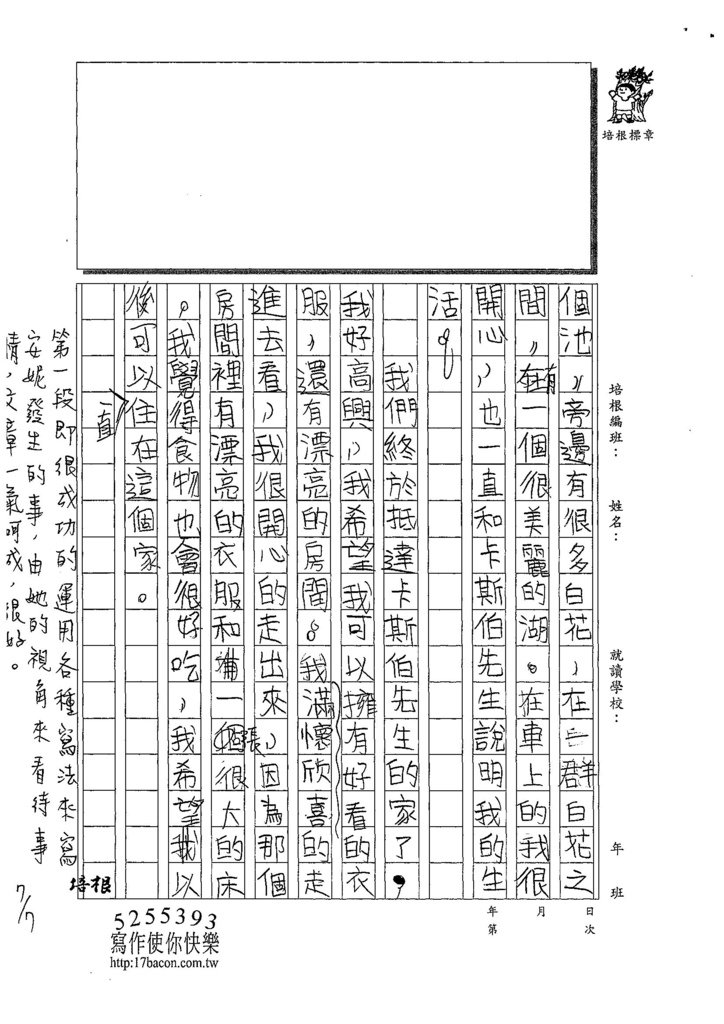 培根標章
培根編班：
姓名：
就讀學校：
年 班
日 次
月
年 第
個池，旁邊有很多白花，在一群白花之
間，有一個很美麗的湖。在車上的我很
開心，也一直和卡斯伯先生說明我的生
活。
我們終於抵達卡斯伯先生的家了，
我好高興，我希望我可以擁有好看的衣
服，還有漂亮的房間。我滿懷欣喜的走
進去看，我很開心的走出來，因為那個
房間裡有漂亮的衣服和一張很大的床
，我覺得食物也會很好吃，我希望我以
後可以一直住在這個家。
第一段即很成功的運用各種寫法來寫
安妮發生的事，由她的視角來看待事
情，文章一氣呵成，很好。
7/7
培根
5255393
寫作使你快樂
http:17bacon.com.tw